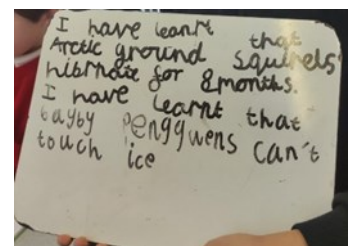 I have learnt that
Arctic ground squirels
hibrnate for 8 months.
I have learnt that
bayby pengguens can't
touch ice